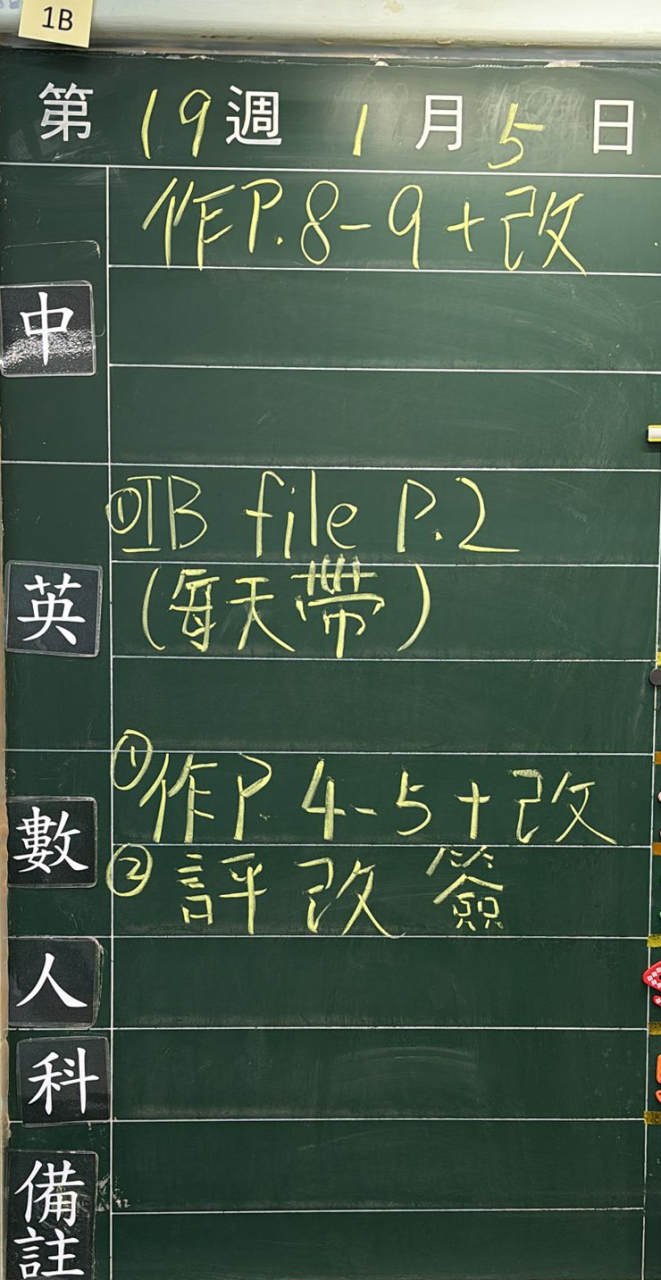 1B
第19週1月5日
作P.8-9+改
中
①IB file P.2
英
(每天帶)
①作P 4-5+改
數
②評改簽
人
科
備註